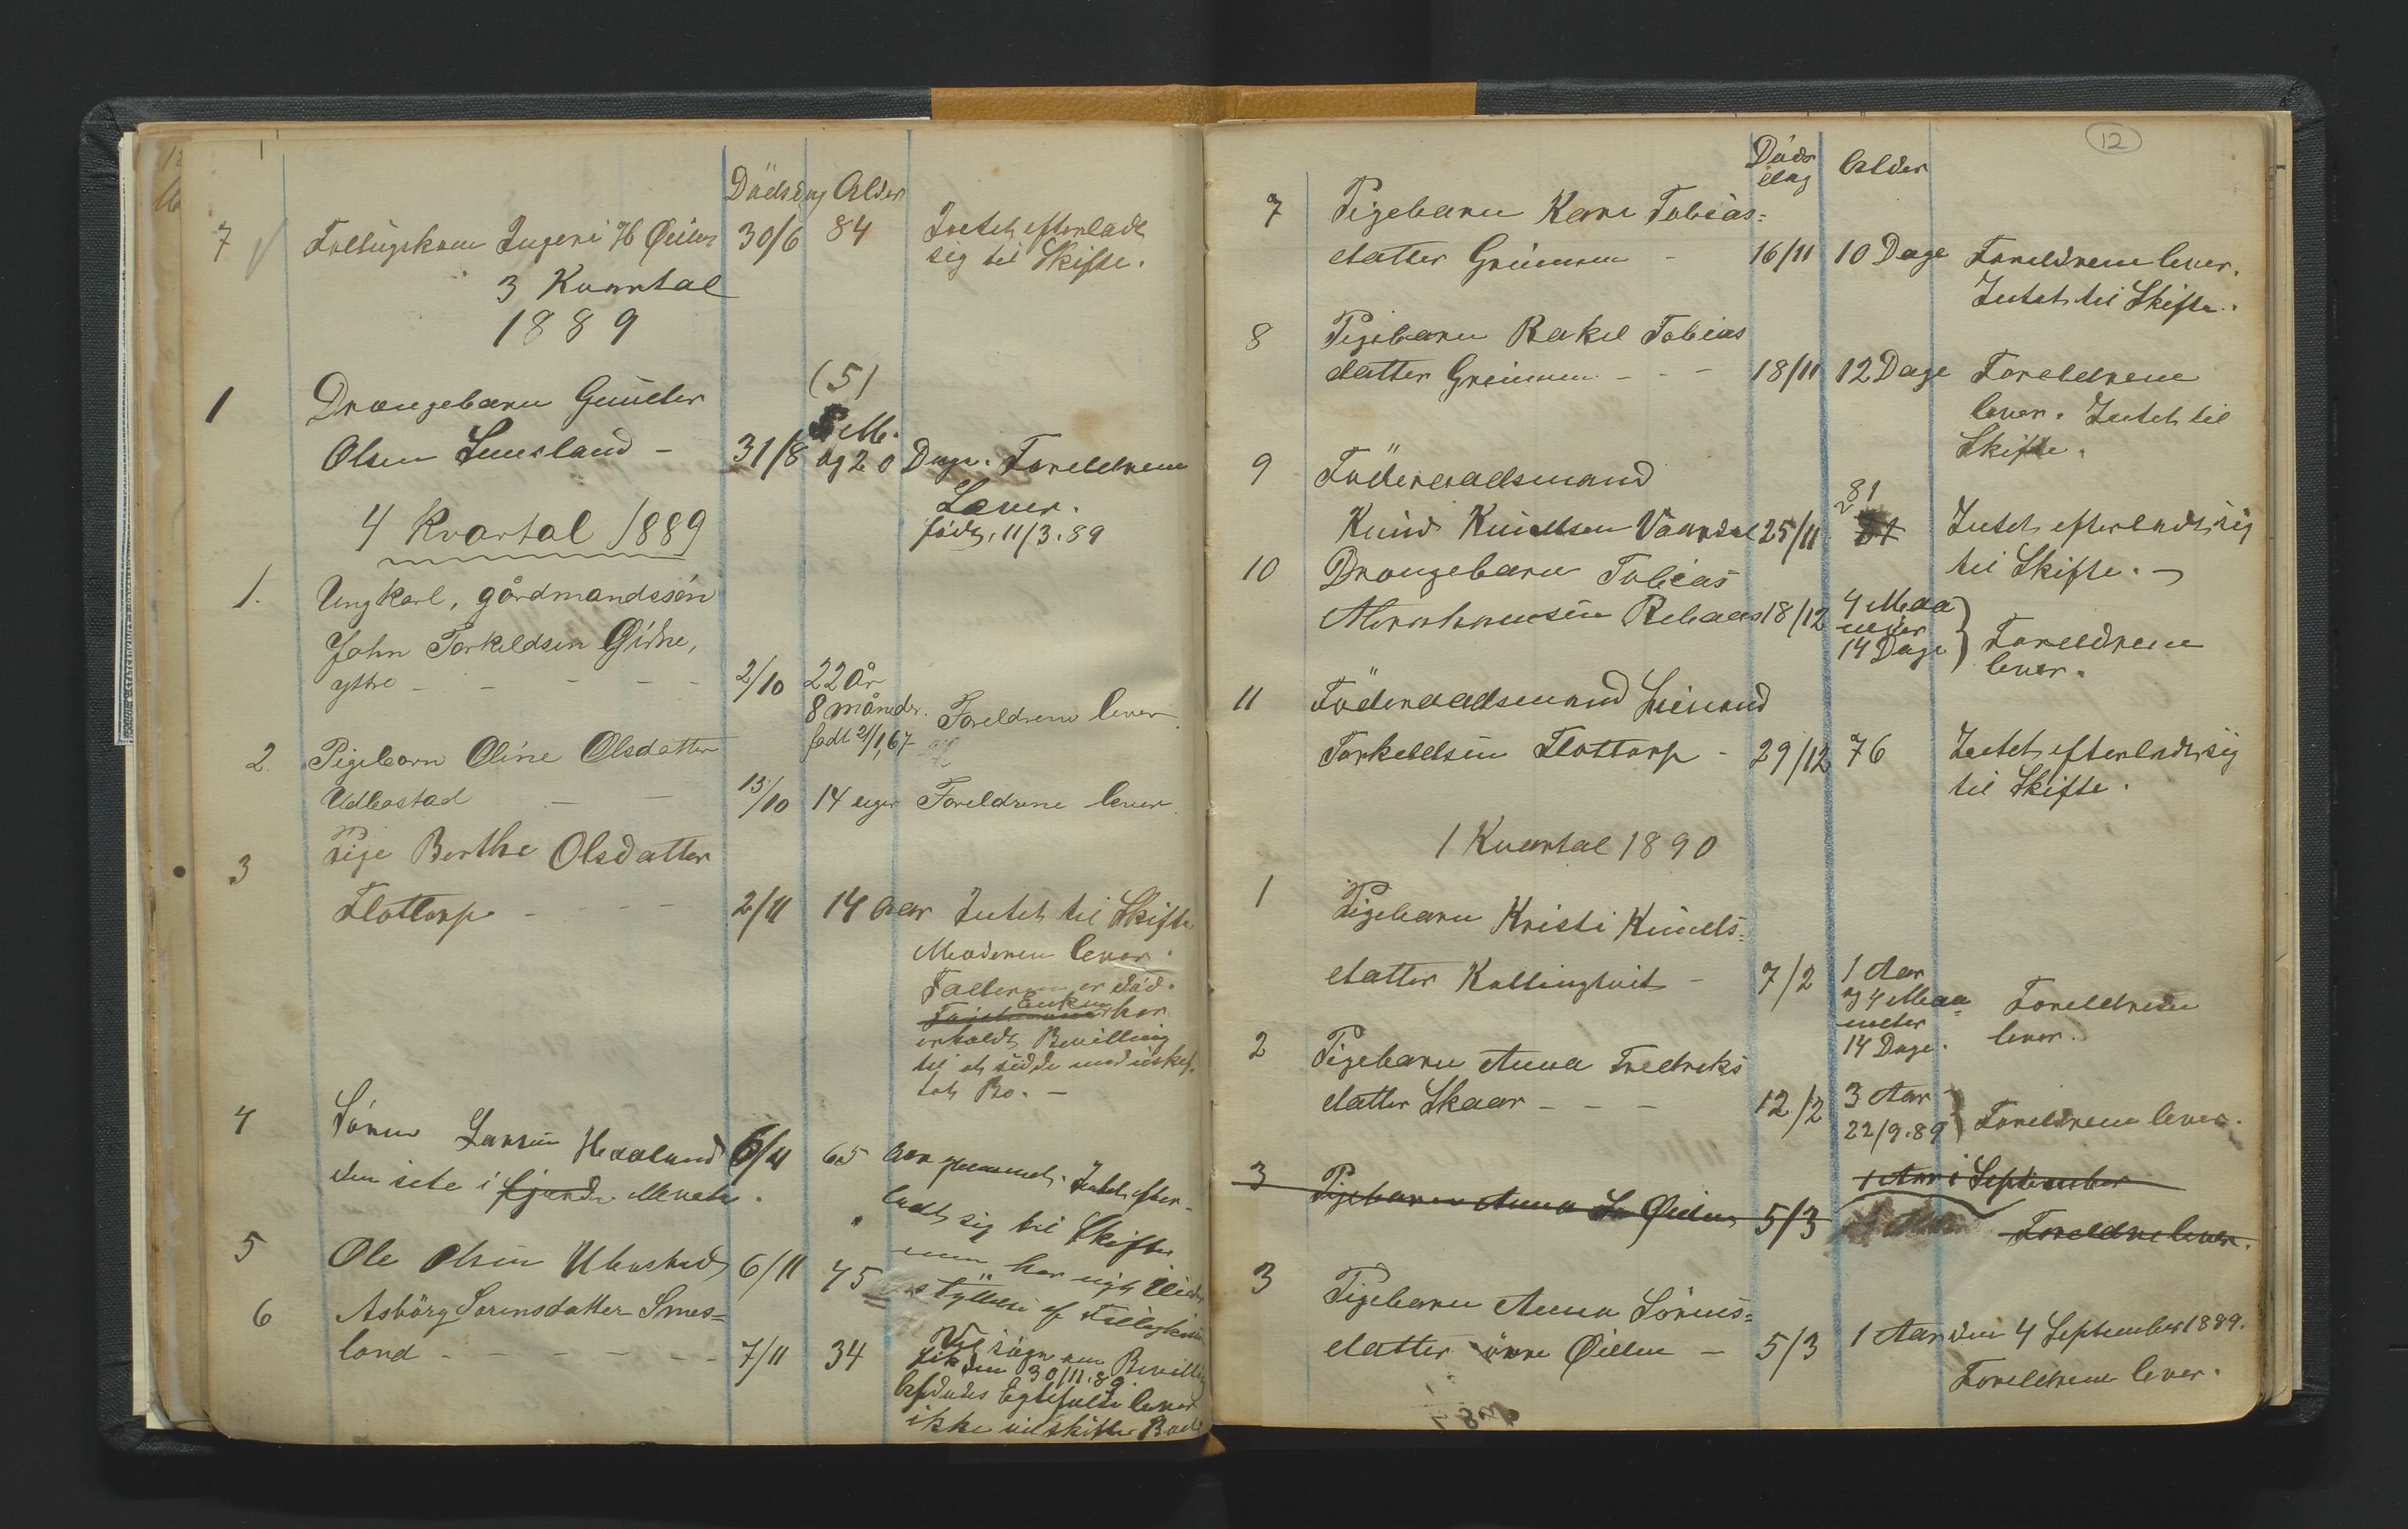 Dödsdag Alder
7 Fattigkone Ingeri H Øilen 30/6 84 Intet efterladt
sig til Skifte.
3 Kvartal
1889
(5)
1 Drængebarn Gunder
5 M.
Olsen Smesland - 31/8 og 20 Dage. Foreldrene
Lever.
født 11/3.89
4 Kvartal 1889
1. Ungkarl, gårdmandssön
John Torkildsen
ytre - - - - - 2/10 22 År
8 måneder. Foreldrene lever
født 2/1,67
2. Pigebarn Oline Olsdatter
Udbostad - - 13/10 14 uger Foreldrene lever.
3 Pige Berthe Olsdatter
Flottorp - - - - 2/11 14 Aar Intet til Skifte
Moderen lever.
Faderen er död.
Enken har
erholdt Bevilling
til at sidde med uskif-
tet Bo. -
4 Sören Larsen Haaland 6/11 65 Aar gammel. Intet efter-
den siste i fjerde Menate.
ladt sig til Skifte
5 Ole Olsen Ubostad 6/11 45
men har nyt Under
støttelse af Fattigkassen
6 Asbörg Sorensdatter Smes=
land - - - - - - 7/11 34
Bevilling
fik den 30/11.89.
Afdødes Egtefelle lever
ikke vil skifte Boet
12
Döds
dag Alder
7 Pigebarn Kari Tobias=
datter Greimsen - 16/11 10 Dage Foreldrene lever.
Intet til Skifte.
8 Pigebarn Rakel Tobias
datter Greimsen - - - 18/11 12 Dage Foreldrene
lever. Intet til
Skifte.
9 Föderaadsmand
81
Knud Knudsen Vaardal 25/11 Intet efterladt sig
til Skifte. -
10 Drængebarn Tobias
Abrahamsen Rebaas 18/12 4 Maa
neder
14 Dage } Foreldrene
lever.
11 Föderaadsmand Lienand
Torkeldsen Flottorp - 29/12 76 Intet efterladt sig
til Skifte.
1 Kvartal 1890
1 Pigebarn Kristi Knuds=
datter Kollingtveit - 7/2 1 Aar
og 4 Maa=
neder Foreldrene
14 Dage. lever.
2 Pigebarn Anna Fredreks
datter Skaar - - - 12/2 3 Aar
22/9.89 } Foreldrene lever.
1 Aar i September
3 Pigebarn Anna S. Øilen 5/3 Foreldrene lever.
3 Pigebarn Anna Sörens=
datter övre Øilen - 5/3 1 Aar den 4 September 1889.
Foreldrene lever.